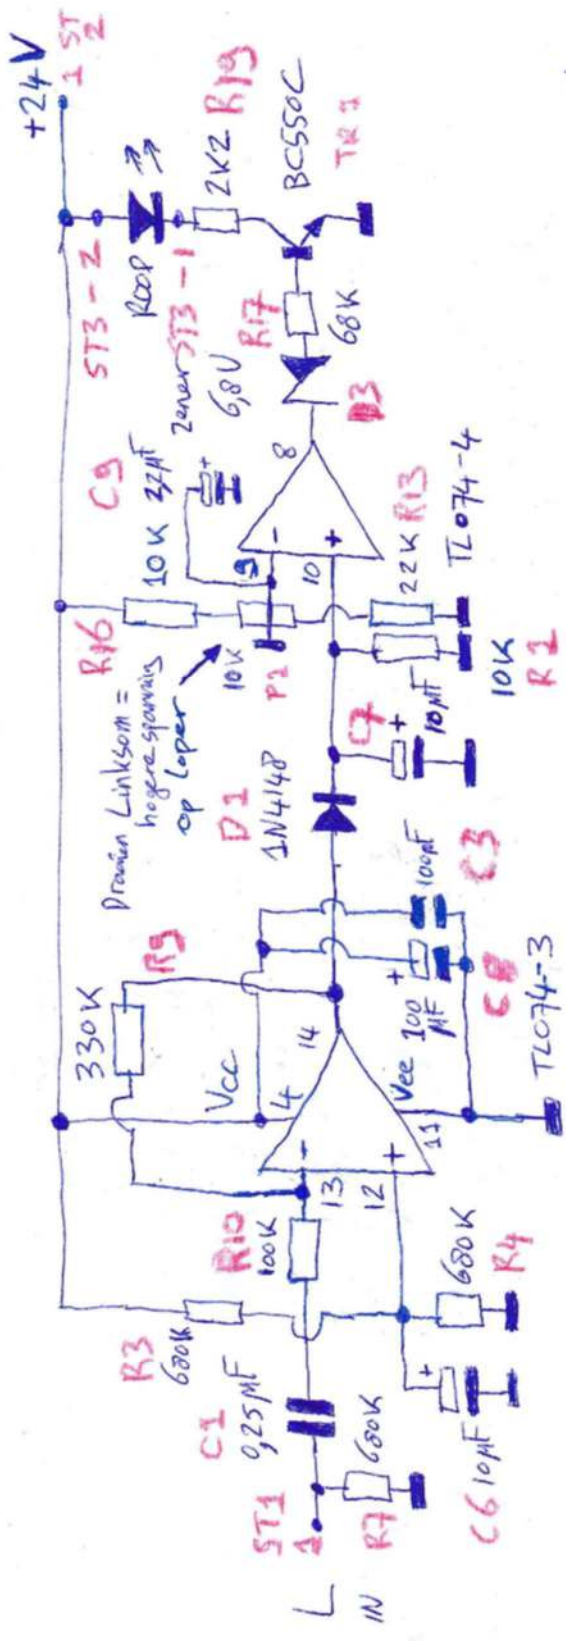 L
IN
ST1
1
R7
680K
C1
0,25µF
R3
680K
C6
10µF
R10
100K
680K
R4
13
12
330K
R9
Vcc
4
14
Vee
11
100
µF
100nF
C3
TL074-3
Draaien Linksom =
hogere spanning
op loper
D1
1N4148
C7
10µF
R16
10K
10K
P1
C9
22µF
9
10
8
22K
R13
10K
R1
TL074-4
zener
6,8V
D3
R17
68K
ST3-2
ROOD
ST3-1
2K2
R19
BC550C
TR1
+24V
1
ST
2